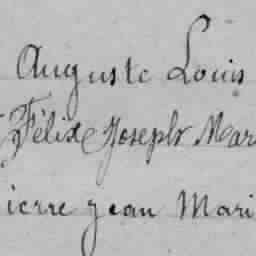 Auguste Louis
Félix Joseph Mar
ierre jean Mari